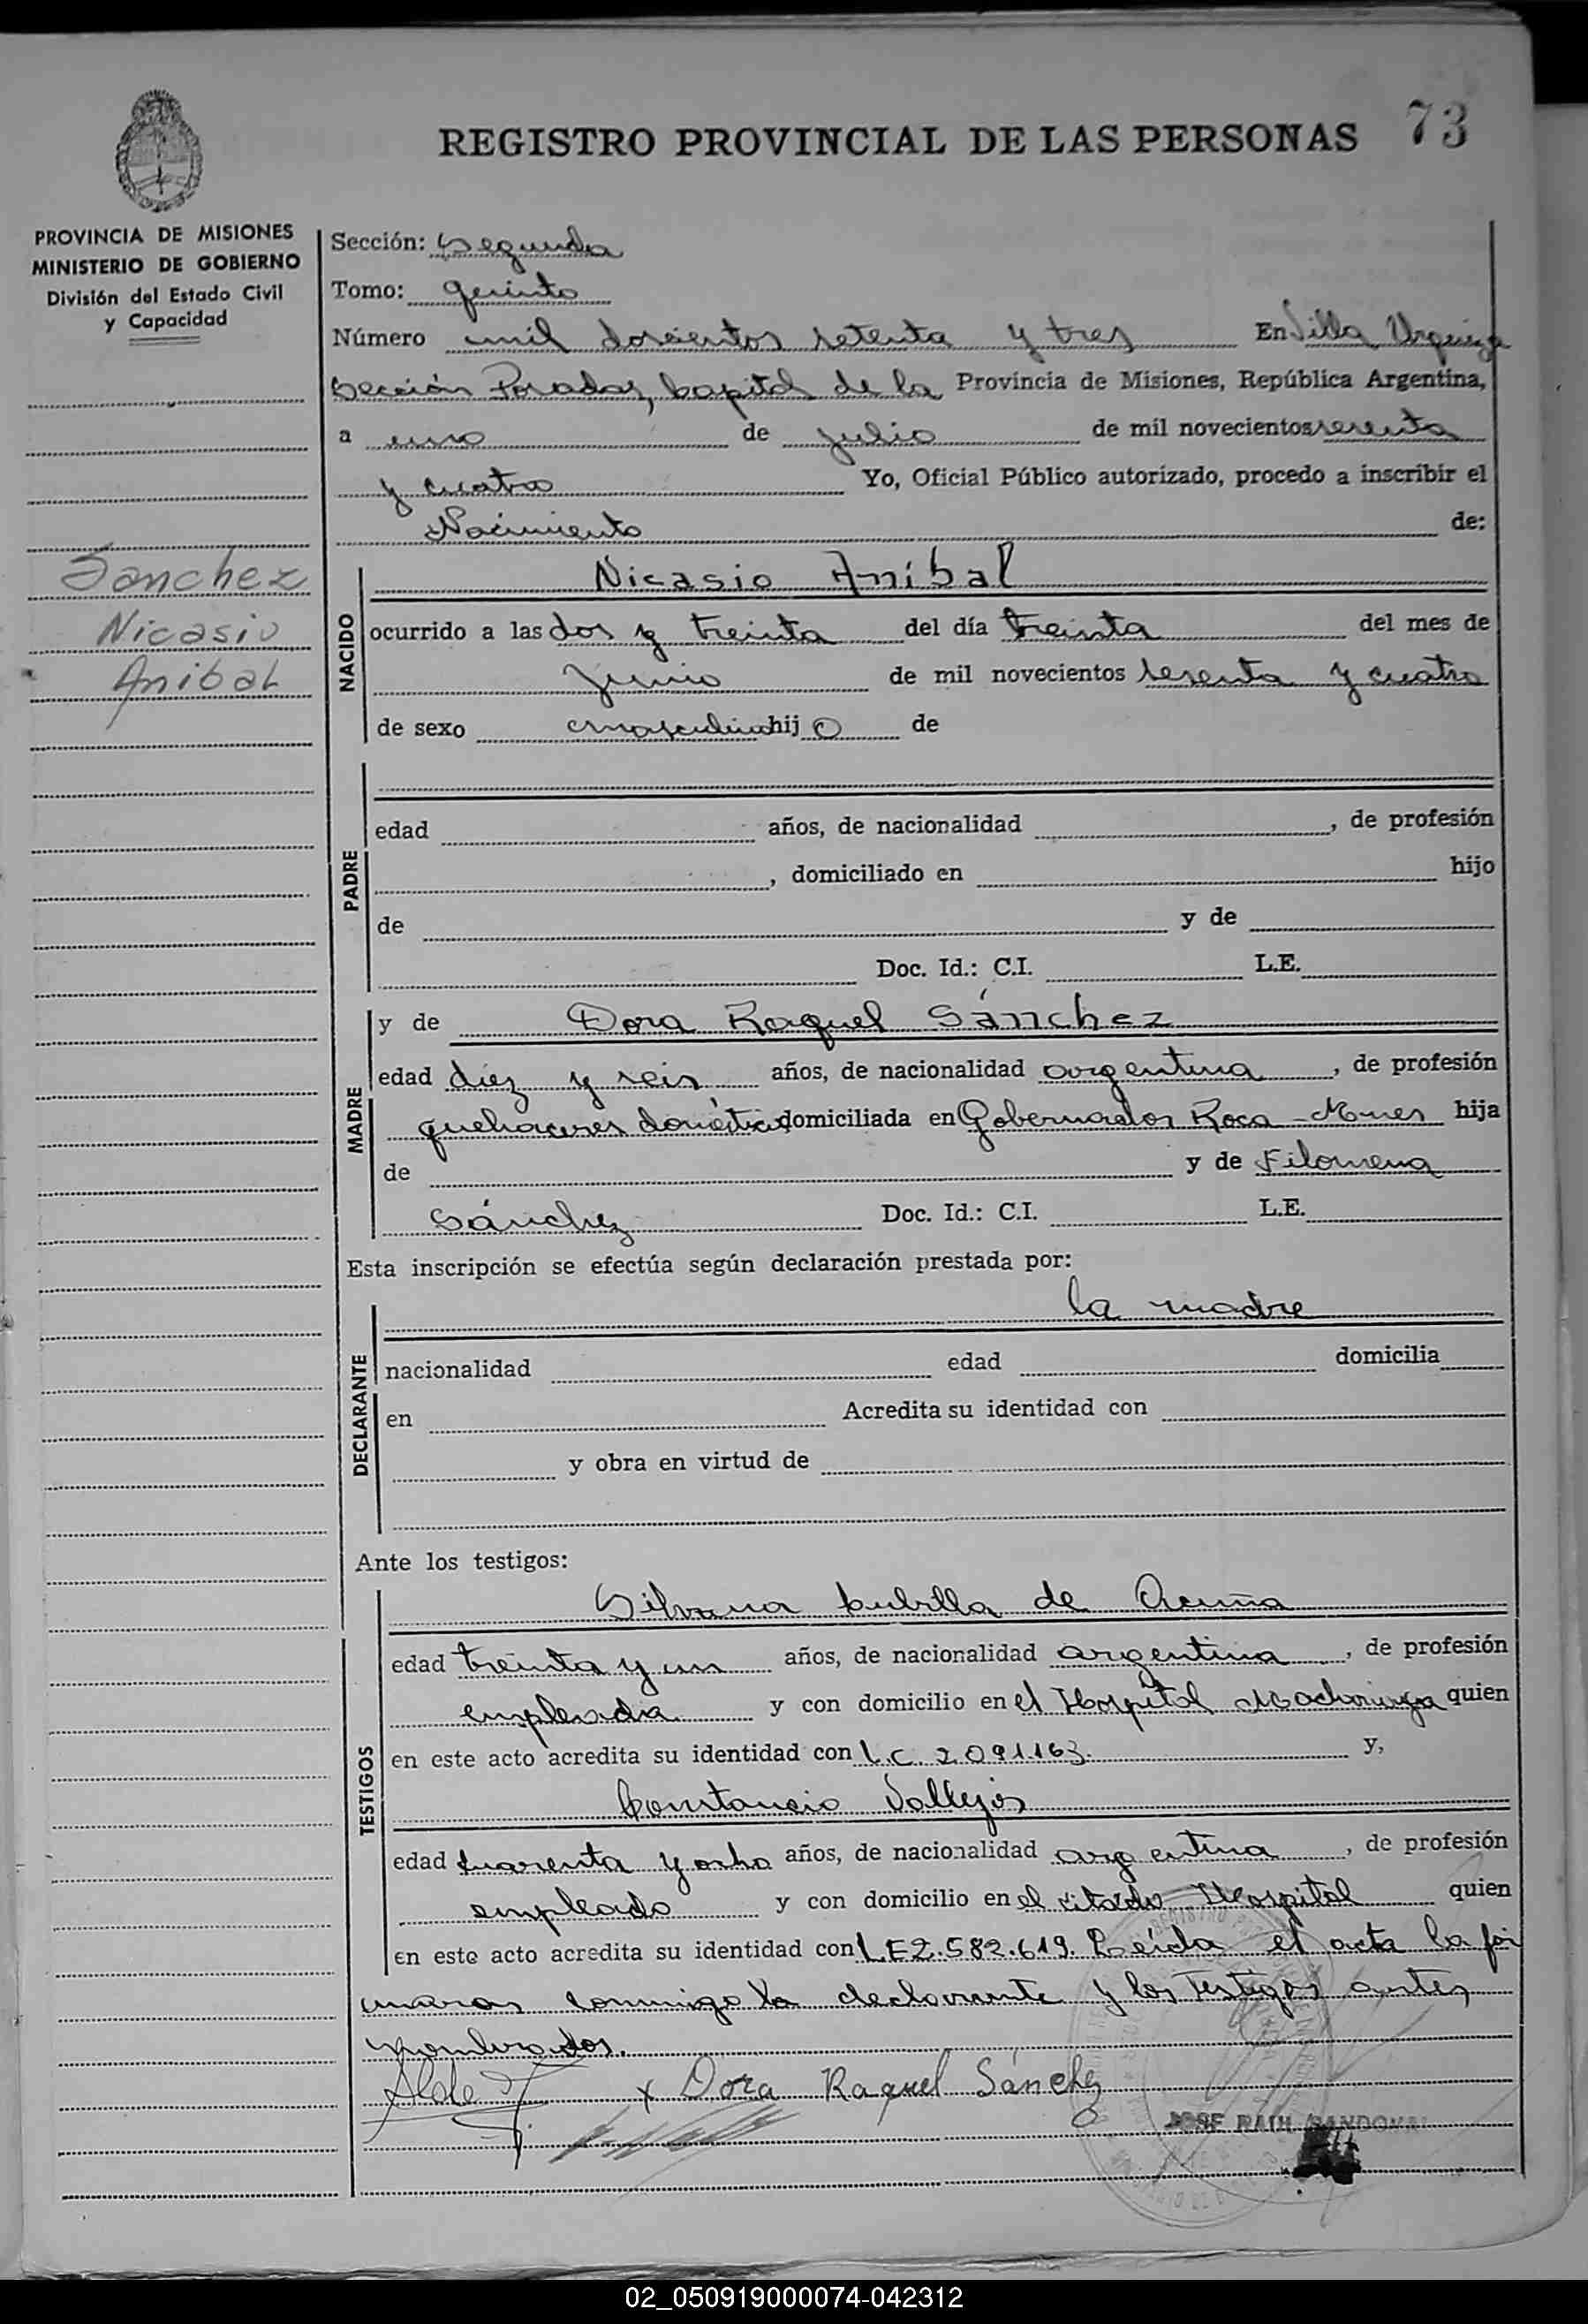 73
REGISTRO PROVINCIAL DE LAS PERSONAS
PROVINCIA DE MISIONES
MINISTERIO DE GOBIERNO
División del Estado Civil
y Capacidad
Sánchez
Nicasio
Anibal
Sección: Segunda
Tomo: quinto
Número mil doscientos setenta y tres En Villa Urquiza
Sección Posadas, Capital de la Provincia de Misiones, República Argentina,
a uno de julio de mil novecientos sesenta
y cuatro Yo, Oficial Público autorizado, procedo a inscribir el
Nacimiento de:
NACIDO
Nicasio Aníbal
ocurrido a las dos y treinta del día treinta del mes de
junio de mil novecientos sesenta y cuatro
de sexo masculino hijo de
PADRE
edad años, de nacionalidad , de profesión
, domiciliado en hijo
de y de
Doc. Id.: C.I. L.E.
MADRE
y de Dora Raquel Sánchez
edad diez y seis años, de nacionalidad argentina , de profesión
quehaceres domésticos domiciliada en Gobernador Roca - Mnes hija
de y de Filomena
Sánchez Doc. Id.: C.I. L.E.
Esta inscripción se efectúa según declaración prestada por:
DECLARANTE
la madre
nacionalidad edad domicilia
en Acredita su identidad con
y obra en virtud de
Ante los testigos:
TESTIGOS
Silvana Cubilla de Acuña
edad treinta y un años, de nacionalidad argentina , de profesión
empleada y con domicilio en el Hospital quien
en este acto acredita su identidad con L.C. 2.091.163. y,
Constancio Vallejos
edad cuarenta y ocho años, de nacionalidad argentina , de profesión
empleado y con domicilio en el citado Hospital quien
en este acto acredita su identidad con LE 2.582.619. Leída el acta la fir
maron conmigo la declarante y los testigos antes
nombrados.
x Dora Raquel Sánchez
JOSE RAUL SANDOVAL
02_050919000074-042312